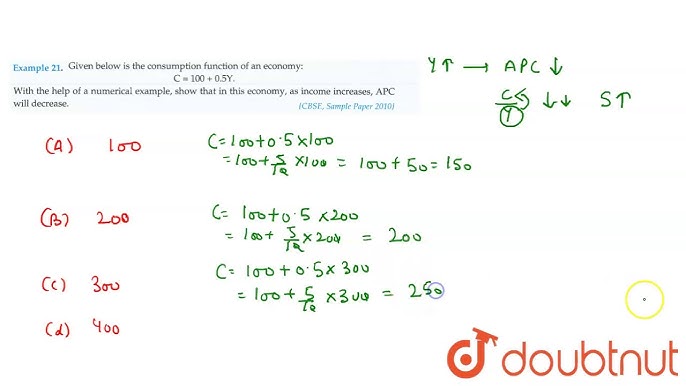 Example 21. Given below is the consumption function of an economy:
C = 100 + 0.5Y.
With the help of a numerical example, show that in this economy, as income increases, APC
will decrease.
[CBSE, Sample Paper 2010]
Y↑ → APC ↓
C/Y ↓↓ S↑
(A) 100
C=100+0.5×100
=100+5/10×100 = 100+50=150
(B) 200
C= 100+0.5×200
= 100+ 5/10×200 = 200
(C) 300
C= 100+0.5×300
= 100+5/10×300 = 250
(d) 400
doubtnut